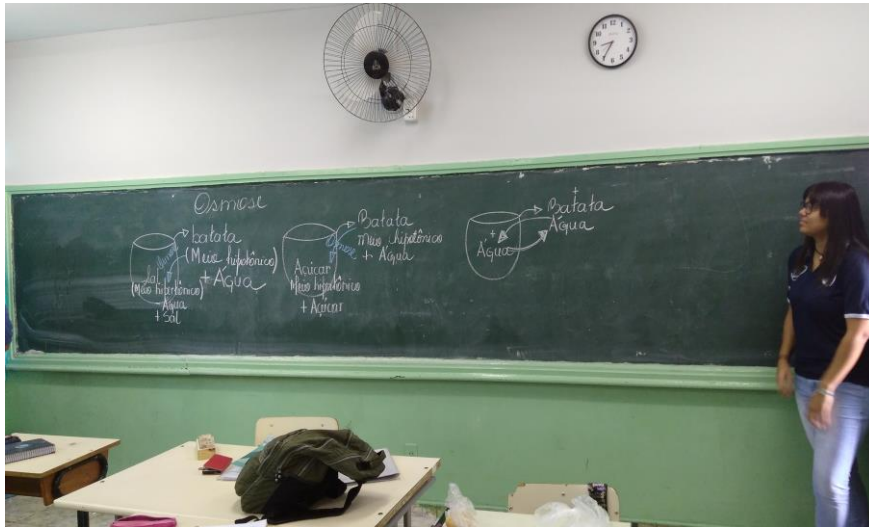 Osmose
batata
(Meio hipotônico)
+ Água
Sal
(Meio hipertônico)
- Água
+ Sal
Batata
Meio hipotônico
+ Água
Osmose
Açúcar
Meio hipertônico
+ Açúcar
+
Batata
Água
+
Água